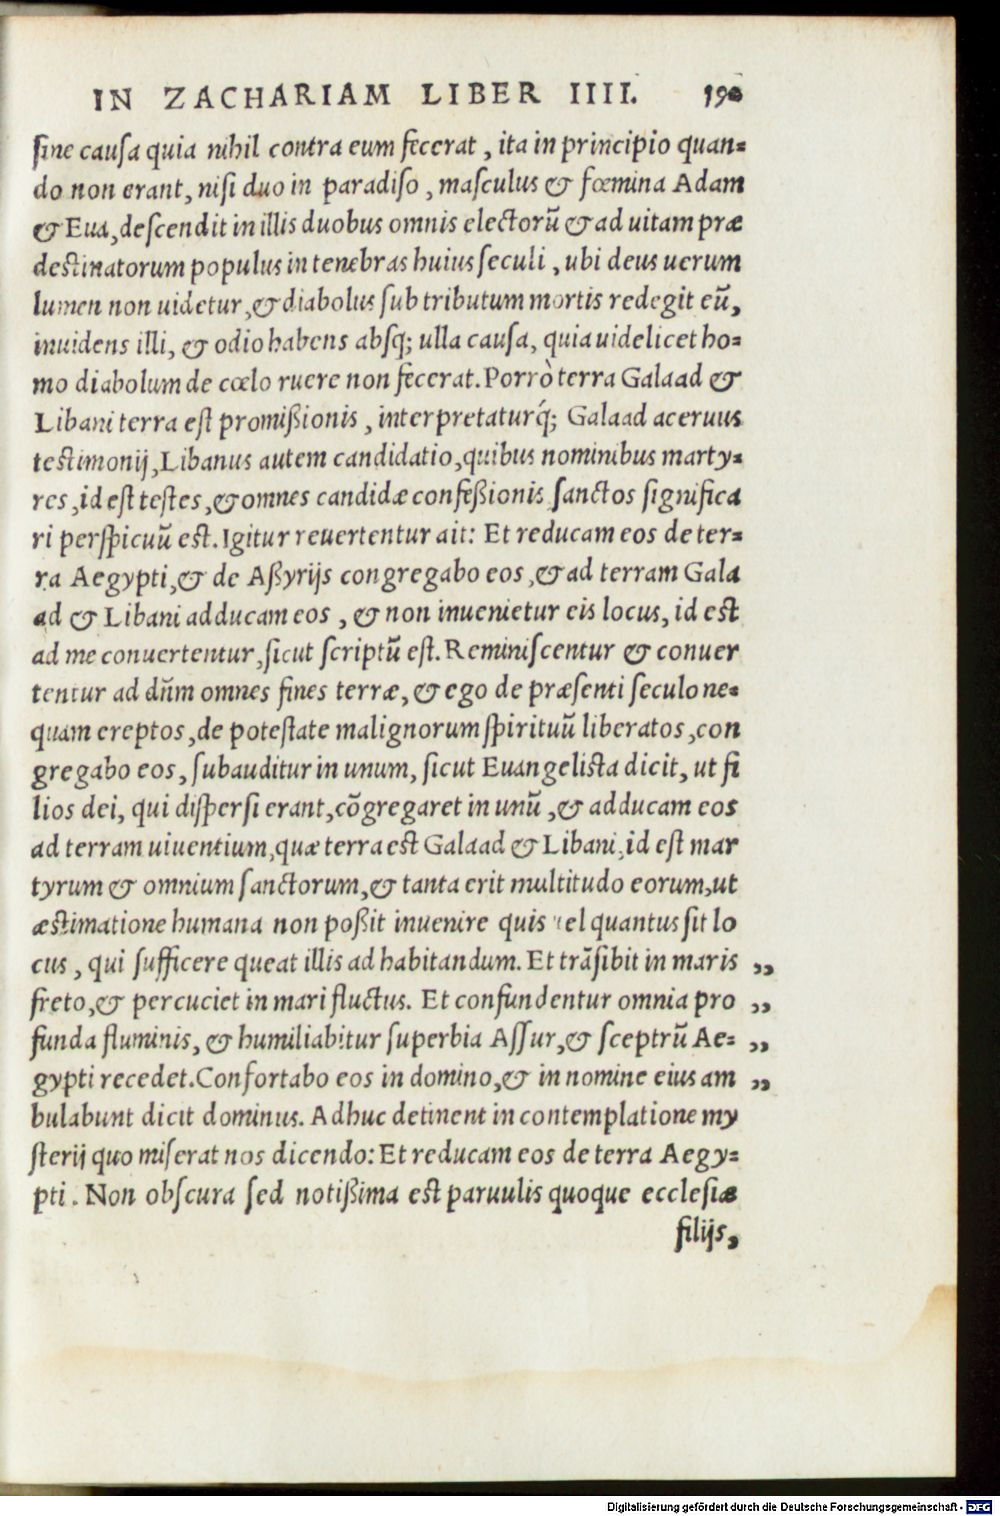 IN ZACHARIAM LIBER IIII. 190
ſine cauſa quia nihil contra eum fecerat, ita in principio quan=
do non erant, niſi duo in paradiſo, maſculus & fœmina Adam
& Eua, deſcendit in illis duobus omnis electorũ & ad uitam præ
deſtinatorum populus in tenebras huius ſeculi, ubi deus uerum
lumen non uidetur, & diabolus ſub tributum mortis redegit eũ,
inuidens illi, & odio habens abſq; ulla cauſa, quia uidelicet ho=
mo diabolum de cœlo ruere non fecerat. Porrò terra Galaad &
Libani terra eſt promißionis, interpretaturq́; Galaad aceruus
teſtimonij, Libanus autem candidatio, quibus nominibus marty=
res, id eſt teſtes, & omnes candidæ confeßionis ſanctos ſignifica
ri perſpicuũ eſt. Igitur reuertentur ait: Et reducam eos de ter=
ra Aegypti, & de Aßyrijs congregabo eos, & ad terram Gala
ad & Libani adducam eos, & non inuenietur eis locus, id eſt
ad me conuertentur, ſicut ſcriptũ eſt. Reminiſcentur & conuer
tentur ad dñm omnes fines terræ, & ego de præſenti ſeculo ne=
quam ereptos, de poteſtate malignorum ſpirituũ liberatos, con
gregabo eos, ſubauditur in unum, ſicut Euangeliſta dicit, ut fi
lios dei, qui diſperſi erant, cõgregaret in unũ, & adducam eos
ad terram uiuentium, quæ terra eſt Galaad & Libani, id eſt mar
tyrum & omnium ſanctorum, & tanta erit multitudo eorum, ut
æſtimatione humana non poßit inuenire quis uel quantus ſit lo
cus, qui ſufficere queat illis ad habitandum. Et trãſibit in maris „
freto, & percuciet in mari fluctus. Et confundentur omnia pro „
funda fluminis, & humiliabitur ſuperbia Aſſur, & ſceptrũ Ae= „
gypti recedet. Confortabo eos in domino, & in nomine eius am „
bulabunt dicit dominus. Adhuc detinent in contemplatione my
ſterij quo miſerat nos dicendo: Et reducam eos de terra Aegy=
pti. Non obſcura ſed notißima eſt paruulis quoque eccleſiæ
filijs,
Digitalisierung gefördert durch die Deutsche Forschungsgemeinschaft - DFG